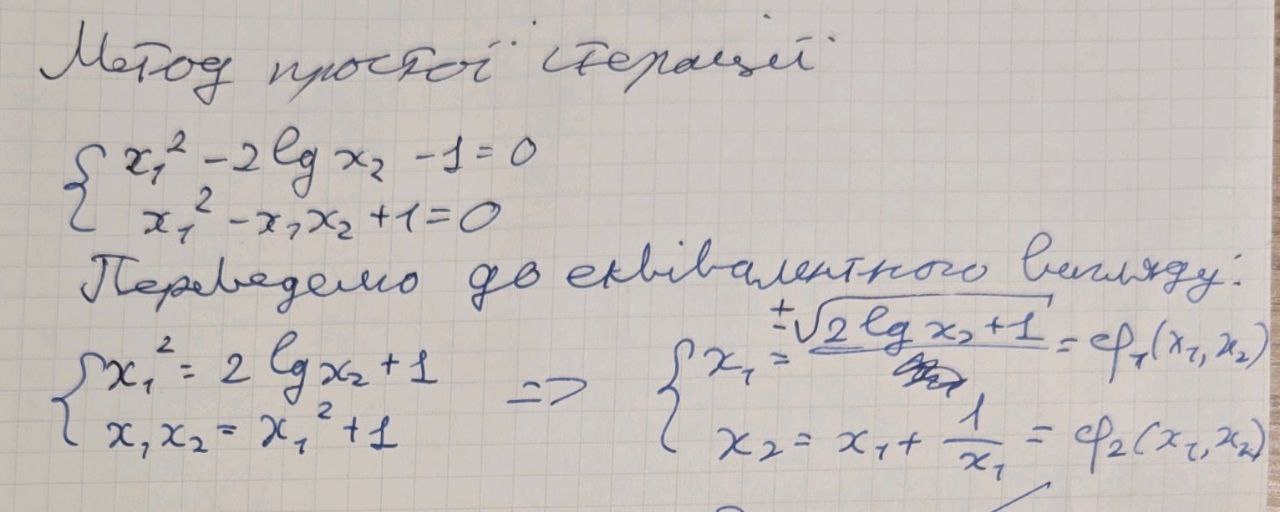 Метод простої ітерації
{ x₁² - 2 lg x₂ - 1 = 0
x₁² - x₁x₂ + 1 = 0
Переведемо до еквівалентного вигляду:
{ x₁² = 2 lg x₂ + 1 => { x₁ = ±√(2 lg x₂ + 1) = φ₁(x₁, x₂)
x₁x₂ = x₁² + 1 x₂ = x₁ + 1/x₁ = φ₂(x₁, x₂)